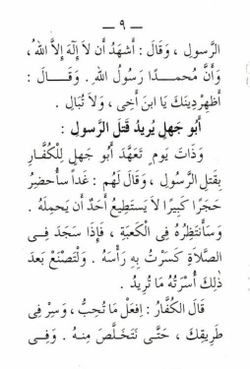 — ٩ —
الرَّسولِ ، وَقَالَ : أَشهَدُ أَن لاَ إِلَهَ إِلاَّ اللهُ ،
وَأَنَّ مُحمـدًا رَسُولُ اللهِ . وَقَـالَ :
أَظهِردِينَكَ يَا ابنَ أَخِى ، وَلاَ تُبَالِ .
أَبُو جَهلٍ يُرِيدُ قَتلَ الرَّسولِ :
وَذَاتَ يَومٍ تَعَهَّدَ أَبُو جَهلٍ لِلْكُفَّارِ
بِقَتلِ الرَّسُولِ ، وَقَالَ لَهُم : غَداً سأُحضِرُ
حَجَرًا كَبِيرًا لاَ يَستَطِيعُ أَحَدٌ أَن يَحمِلَهُ .
وَسَأَنتَظِرُهُ فِى الكَعبَةِ ، فَإِذَا سَجَدَ فِـى
الصَّلاَةِ كَسَرْتُ بِهِ رَأسَهُ . وَلْتَصْنَعْ بَعدَ
ذَلِكَ أُسْرَتُهُ مَا تُرِيدُ .
قَالَ الكُفَّارُ : اِفعَلْ مَا تُحِبُّ ، وَسِرْ فِى
طَرِيقكَ ، حَتَّـى نَتَخَلَّصَ مِنـهُ . وَفِـى